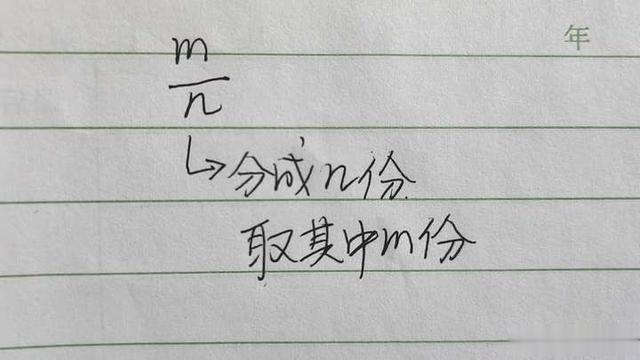 年
m
n
↳分成n份
取其中m份